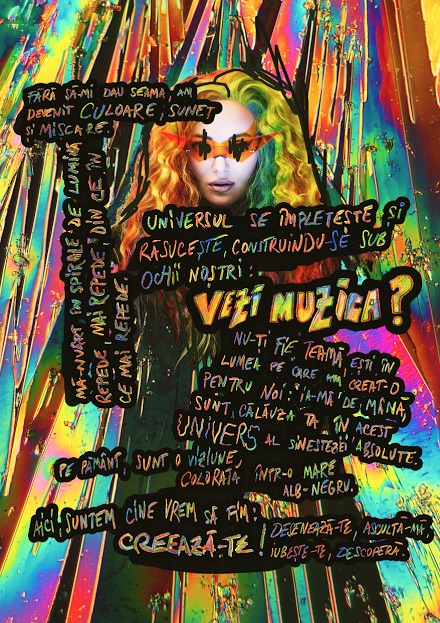 FĂRĂ SĂ-MI DAU SEAMA, AM
DEVENIT CULOARE, SUNET
ȘI MIȘCARE.
MĂ-NVÂRT ÎN SPIRALE DE LUMINĂ
REPEDE, MAI REPEDE, DIN CE ÎN
CE MAI REPEDE.
UNIVERSUL SE ÎMPLETEȘTE ȘI
RĂSUCEȘTE, CONSTRUINDU-SE SUB
OCHII NOȘTRI:
VEZI MUZICA?
NU-ȚI FIE TEAMĂ, EȘTI ÎN
LUMEA PE CARE AM CREAT-O
PENTRU NOI: IA-MĂ DE MÂNĂ,
SUNT CĂLĂUZA TA ÎN ACEST
UNIVERS AL SINESTEZIEI ABSOLUTE.
PE PĂMÂNT, SUNT O VIZIUNE
COLORATĂ ÎNTR-O MARE
ALB-NEGRU.
AICI, SUNTEM CINE VREM SĂ FIM:
CREEAZĂ-TE! DESENEAZĂ-TE, ASCULTĂ-MĂ,
IUBEȘTE-TE, DESCOPERĂ.